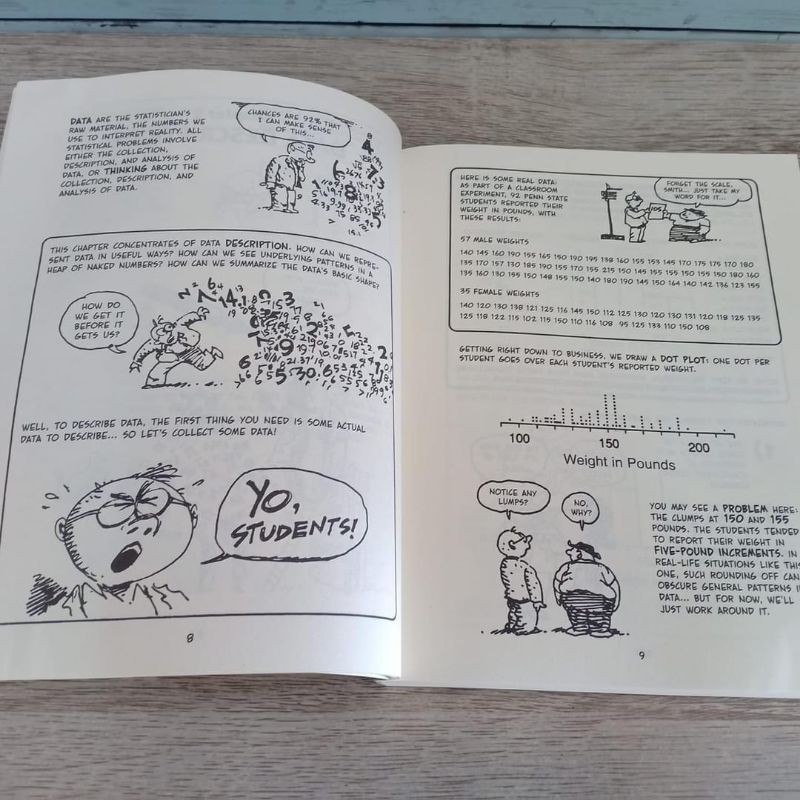 DATA ARE THE STATISTICIAN'S
RAW MATERIAL, THE NUMBERS WE
USE TO INTERPRET REALITY. ALL
STATISTICAL PROBLEMS INVOLVE
EITHER THE COLLECTION,
DESCRIPTION, AND ANALYSIS OF
DATA, OR THINKING ABOUT THE
COLLECTION, DESCRIPTION, AND
ANALYSIS OF DATA.
CHANCES ARE 92% THAT
I CAN MAKE SENSE
OF THIS...
THIS CHAPTER CONCENTRATES OF DATA DESCRIPTION. HOW CAN WE REPRE-
SENT DATA IN USEFUL WAYS? HOW CAN WE SEE UNDERLYING PATTERNS IN A
HEAP OF NAKED NUMBERS? HOW CAN WE SUMMARIZE THE DATA'S BASIC SHAPE?
HOW DO
WE GET IT
BEFORE IT
GETS US?
WELL, TO DESCRIBE DATA, THE FIRST THING YOU NEED IS SOME ACTUAL
DATA TO DESCRIBE... SO LET'S COLLECT SOME DATA!
YO,
STUDENTS!
8
HERE IS SOME REAL DATA:
AS PART OF A CLASSROOM
EXPERIMENT, 92 PENN STATE
STUDENTS REPORTED THEIR
WEIGHT IN POUNDS, WITH
THESE RESULTS:
FORGET THE SCALE,
SMITH... JUST TAKE MY
WORD FOR IT...
57 MALE WEIGHTS
140 145 160 190 155 165 150 190 195 138 160 155 153 145 170 175 175 170 180
135 170 157 130 185 190 155 170 155 215 150 145 155 155 150 155 150 180 160
135 160 130 155 150 148 155 150 140 180 190 145 150 164 140 142 136 123 155
35 FEMALE WEIGHTS
140 120 130 138 121 125 116 145 150 112 125 130 120 130 131 120 118 125 135
125 118 122 115 102 115 150 110 116 108 95 125 133 110 150 108
GETTING RIGHT DOWN TO BUSINESS, WE DRAW A DOT PLOT: ONE DOT PER
STUDENT GOES OVER EACH STUDENT'S REPORTED WEIGHT.
100 150 200
Weight in Pounds
NOTICE ANY
LUMPS?
NO,
WHY?
YOU MAY SEE A PROBLEM HERE:
THE CLUMPS AT 150 AND 155
POUNDS. THE STUDENTS TENDED
TO REPORT THEIR WEIGHT IN
FIVE-POUND INCREMENTS. IN
REAL-LIFE SITUATIONS LIKE THIS
ONE, SUCH ROUNDING OFF CAN
OBSCURE GENERAL PATTERNS IN
DATA... BUT FOR NOW, WE'LL
JUST WORK AROUND IT.
9